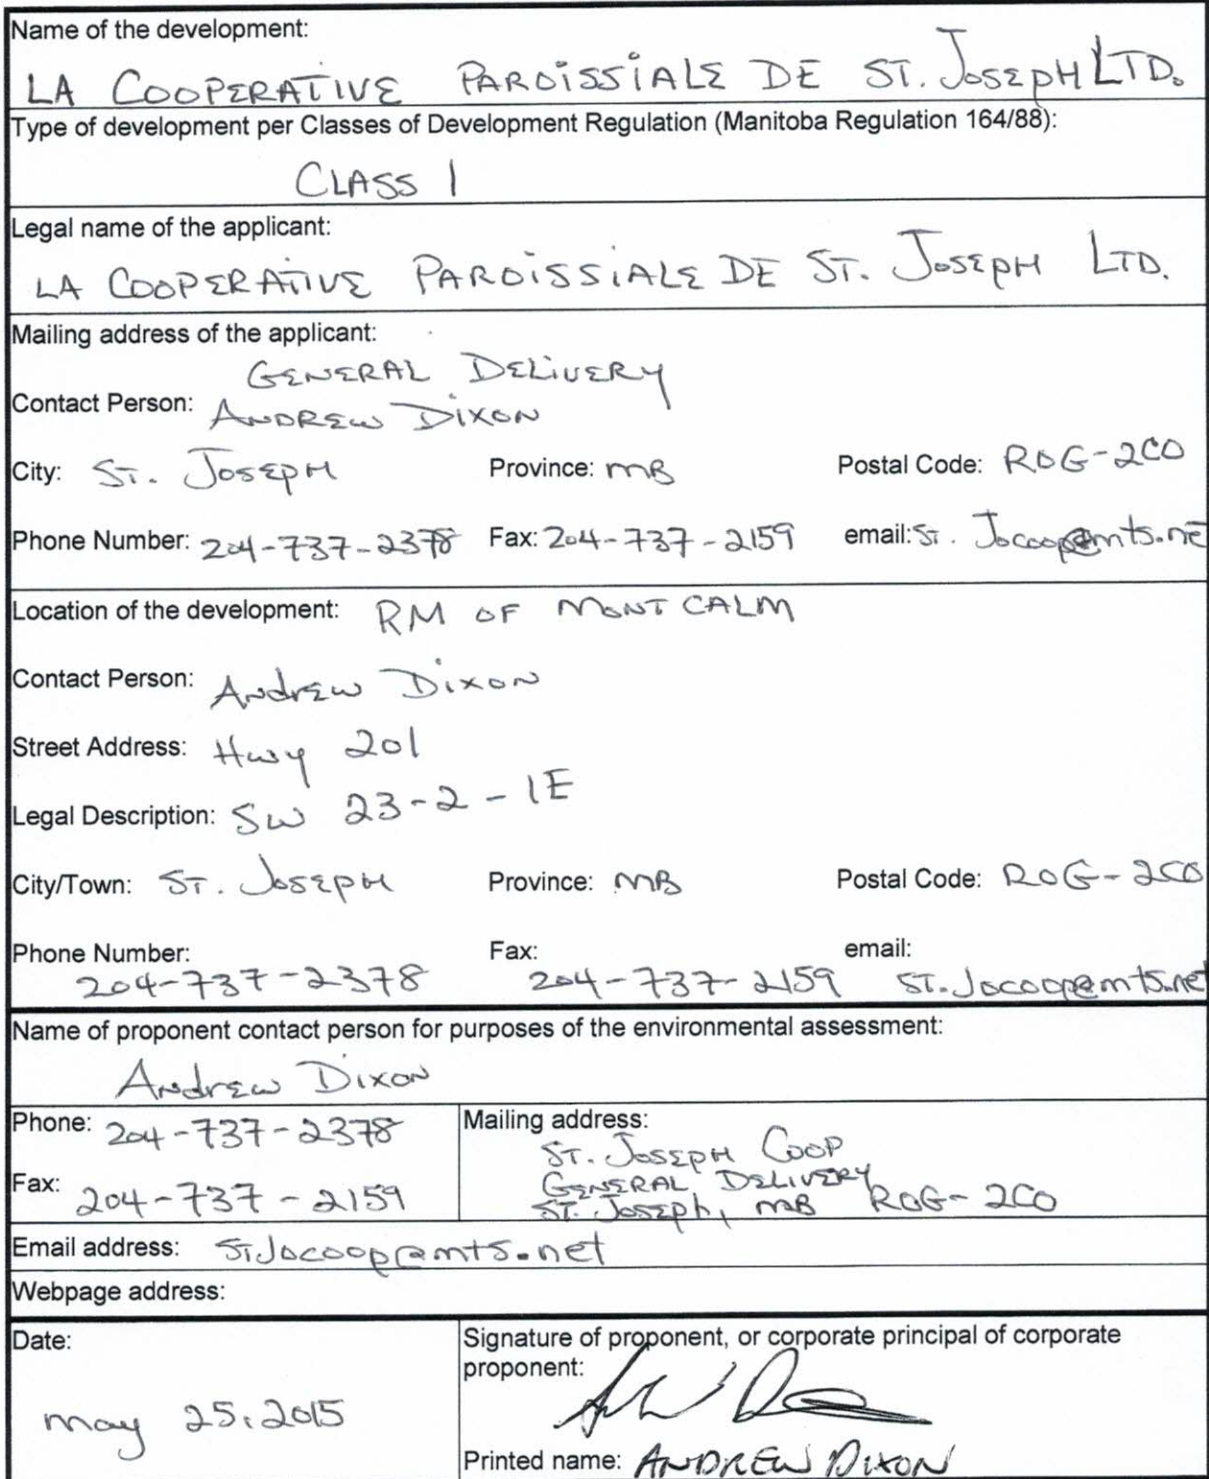 Name of the development:
LA COOPERATIVE PAROISSIALE DE ST. JOSEPH LTD.
Type of development per Classes of Development Regulation (Manitoba Regulation 164/88):
CLASS 1
Legal name of the applicant:
LA COOPERATIVE PAROISSIALE DE ST. JOSEPH LTD.
Mailing address of the applicant:
GENERAL DELIVERY
Contact Person: ANDREW DIXON
City: ST. JOSEPH Province: MB Postal Code: ROG-2CO
Phone Number: 204-737-2378 Fax: 204-737-2159 email: ST. Jocoop@mts.net
Location of the development: RM OF MONTCALM
Contact Person: Andrew Dixon
Street Address: Hwy 201
Legal Description: SW 23-2-1E
City/Town: ST. Joseph Province: MB Postal Code: ROG-2CO
Phone Number: Fax: email:
204-737-2378 204-737-2159 ST.Jocoop@mts.net
Name of proponent contact person for purposes of the environmental assessment:
Andrew Dixon
Phone: 204-737-2378
Fax: 204-737-2159
Mailing address:
ST. JOSEPH COOP
GENERAL DELIVERY
ST. Joseph, MB ROG-2CO
Email address: ST.Jocoop@mts.net
Webpage address:
Date:
may 25, 2015
Signature of proponent, or corporate principal of corporate
proponent:
Printed name: ANDREW DIXON